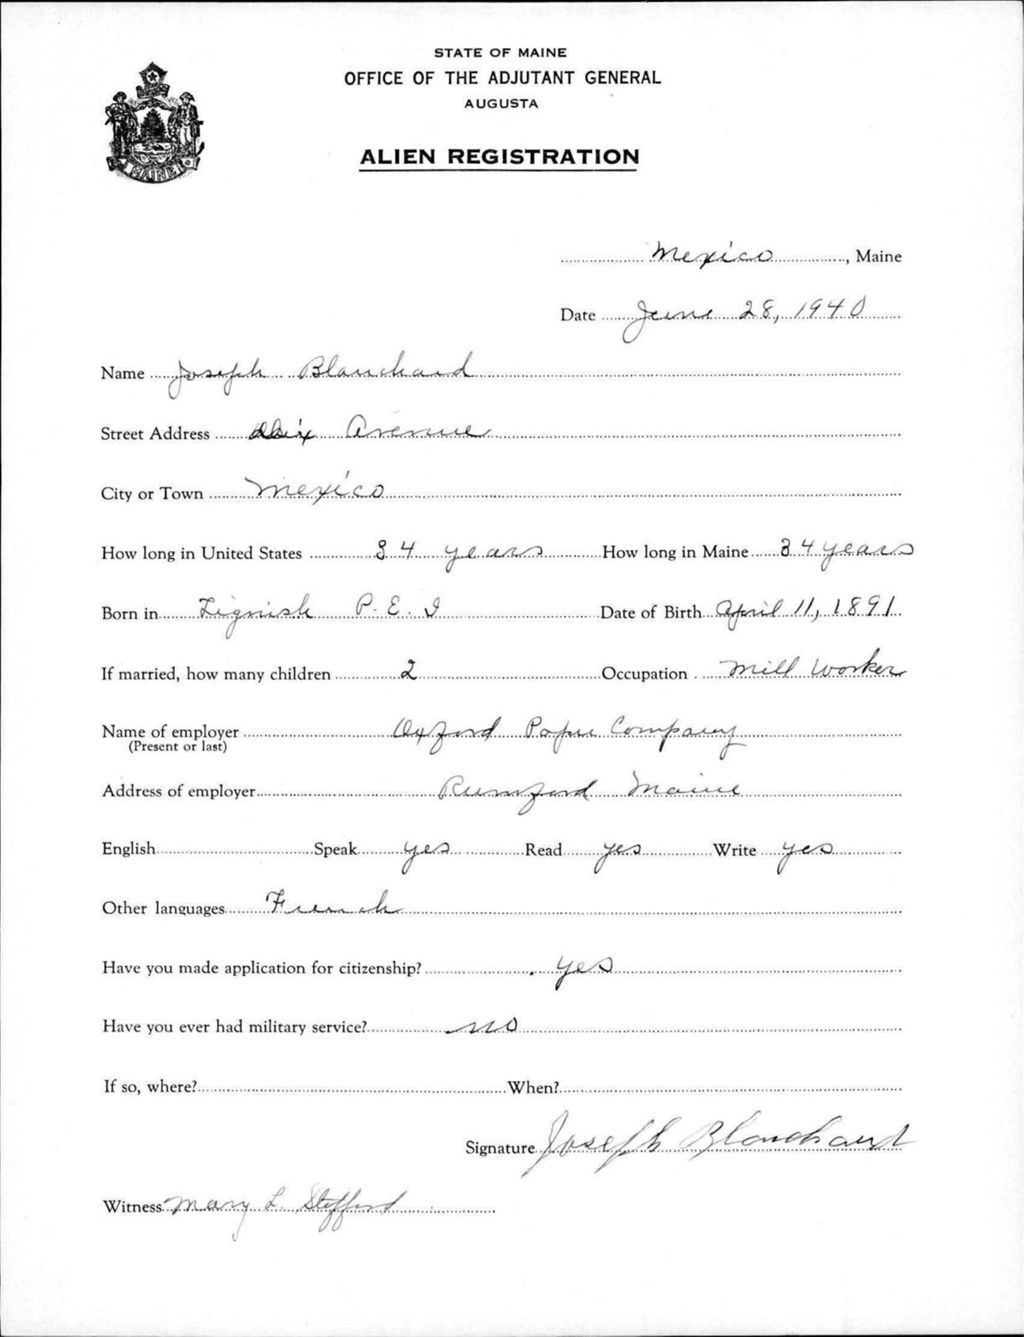 STATE OF MAINE
OFFICE OF THE ADJUTANT GENERAL
AUGUSTA
ALIEN REGISTRATION
MAINE
Mexico, Maine
Date June 28, 1940
Name Joseph Blanchard
Street Address Dix Avenue
City or Town Mexico
How long in United States 34 years How long in Maine 34 years
Born in Tignish P. E. I Date of Birth April 11, 1891
If married, how many children 2 Occupation Mill Worker
Name of employer Oxford Paper Company
(Present or last)
Address of employer Rumford Maine
English Speak yes Read yes Write yes
Other languages French
Have you made application for citizenship? yes
Have you ever had military service? no
If so, where? When?
Signature Joseph Blanchard
Witness Mary L. Stafford